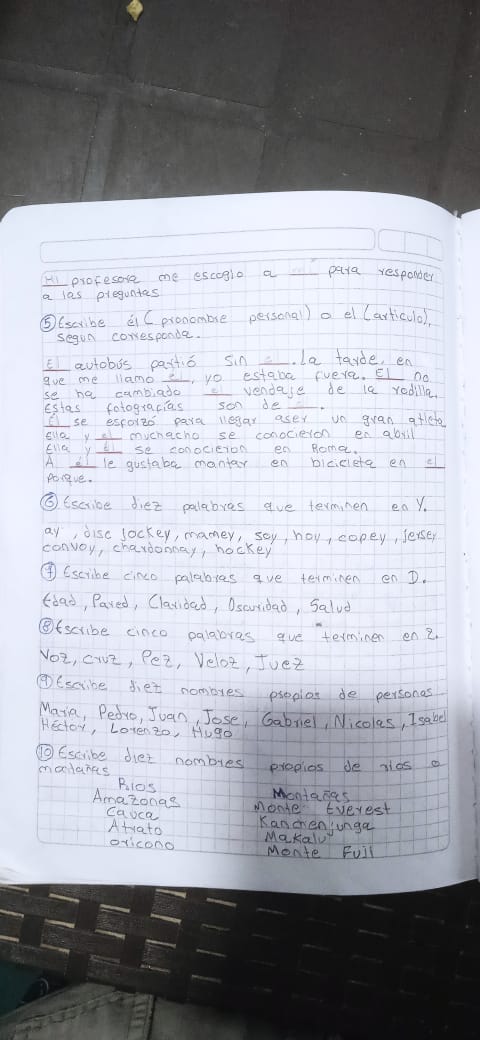 Mi profesora me escogio a mí para responder
a las preguntas
⑤ Escribe él (pronombre personal) o el (artículo),
segun corresponda.
El autobús partió sin él. La tarde, en
que me llamo él, yo estaba fuera. El no
se ha cambiado el vendaje de la rodilla
Estas fotografías son de él.
Él se esforzó para llegar aser un gran atleta
Ella y el muchacho se conocieron en abril
Ella y él se conocieron en Roma.
A él le gustaba mantar en bicicleta en el
porque.
⑥ Escribe diez palabras que terminen en Y.
ay, disc jockey, mamey, soy, hoy, copey, Jersey
convoy, chardonnay, hockey
⑦ Escribe cinco palabras que terminen en D.
Edad, Pared, Claridad, Oscuridad, Salud
⑧ Escribe cinco palabras que terminen en Z.
Voz, cruz, Pez, Veloz, Juez
⑨ Escribe diez nombres propios de personas
Maria, Pedro, Juan, Jose, Gabriel, Nicolas, Isabel
Héctor, Lorenzo, Hugo
⑩ Escribe diez nombres propios de rios o
montañas
Rios Montañas
Amazonas Monte Everest
Cauca Kanchenjunga
Atrato Makalu
oricono Monte Fuji